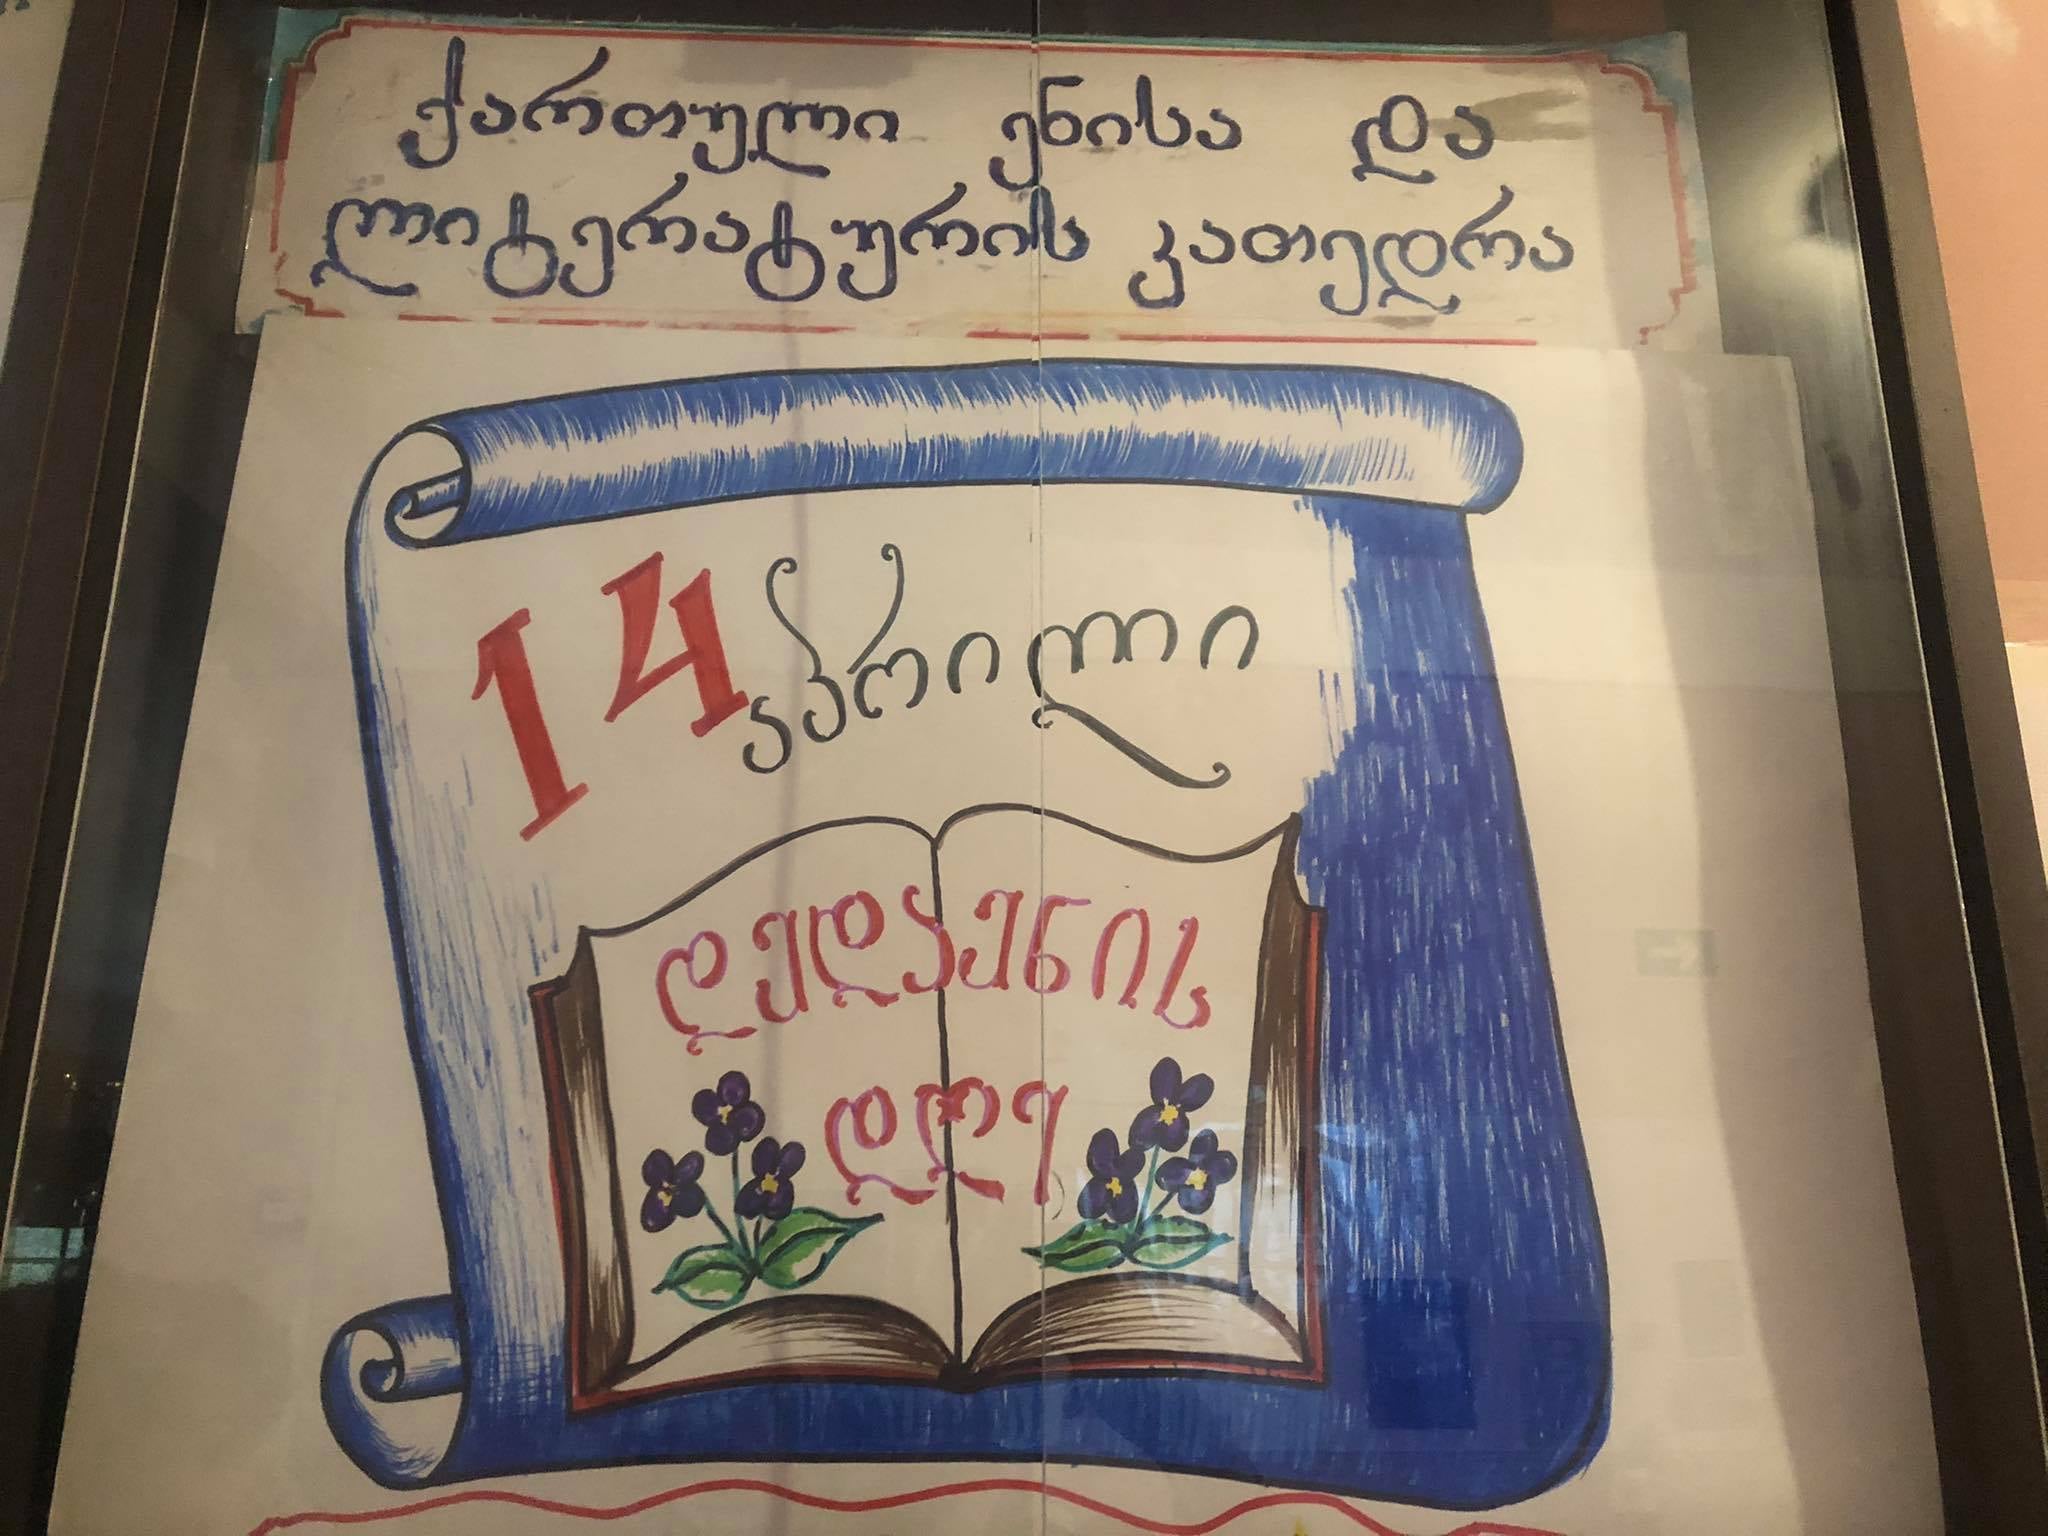 ქართული ენისა და
ლიტერატურის კათედრა
14 აპრილი
დედაენის
დღე